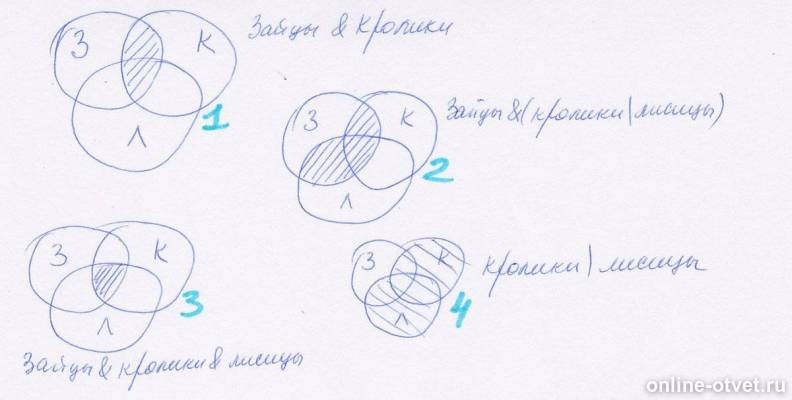 З К Зайцы & Кролики
Л 1
З К Зайцы & (кролики | лисицы)
Л 2
З К
Л 3
Зайцы & кролики & лисицы
З К кролики | лисицы
Л 4
online-otvet.ru